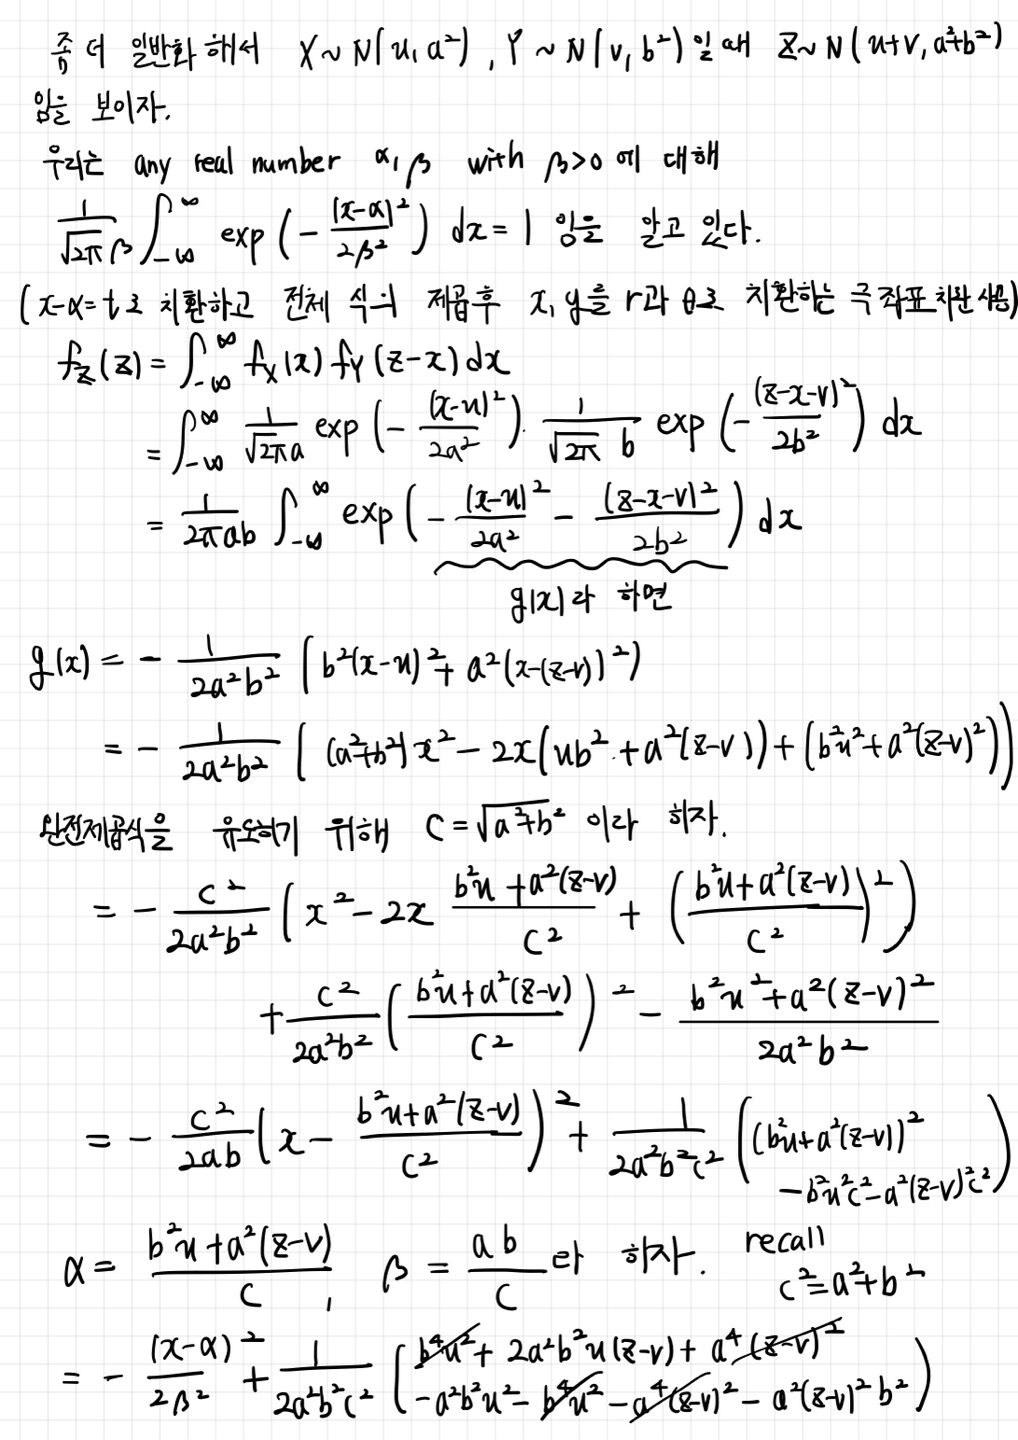 좀 더 일반화 해서 X ~ N(u, a²), Y ~ N(v, b²) 일 때 Z ~ N(u+v, a²+b²)
임을 보이자.
우리는 any real number α, β with β>0 에 대해
1/(√2π β) ∫_{-∞}^{∞} exp(-(x-α)²/2β²) dx = 1 임을 알고 있다.
(x-α=t로 치환하고 전체 식의 제곱후 x, y를 r과 θ로 치환하는 극좌표 치환 사용)
f_Z(z) = ∫_{-∞}^{∞} f_X(x) f_Y(z-x) dx
= ∫_{-∞}^{∞} 1/(√2π a) exp(-(x-u)²/2a²) · 1/(√2π b) exp(-(z-x-v)²/2b²) dx
= 1/(2πab) ∫_{-∞}^{∞} exp(-(x-u)²/2a² - (z-x-v)²/2b²) dx
g(x)라 하면
g(x) = - 1/(2a²b²) (b²(x-u)² + a²(x-(z-v))²)
= - 1/(2a²b²) ((a²+b²)x² - 2x(ub² + a²(z-v)) + (b²u² + a²(z-v)²))
완전제곱식을 유도하기 위해 c = √(a²+b²) 이라 하자.
= - c²/(2a²b²) (x² - 2x (b²u + a²(z-v))/c² + ((b²u + a²(z-v))/c²)²)
+ c²/(2a²b²) ((b²u + a²(z-v))/c²)² - (b²u² + a²(z-v)²)/(2a²b²)
= - c²/(2ab) (x - (b²u + a²(z-v))/c²)² + 1/(2a²b²c²) ((b²u + a²(z-v))²
- b²u²c² - a²(z-v)²c²)
α = (b²u + a²(z-v))/c , β = ab/c 라 하자. recall
c² = a²+b²
= - (x-α)²/2β² + 1/(2a²b²c²) (b⁴u² + 2a²b²u(z-v) + a⁴(z-v)²
- a²b²u² - b⁴u² - a⁴(z-v)² - a²(z-v)²b²)